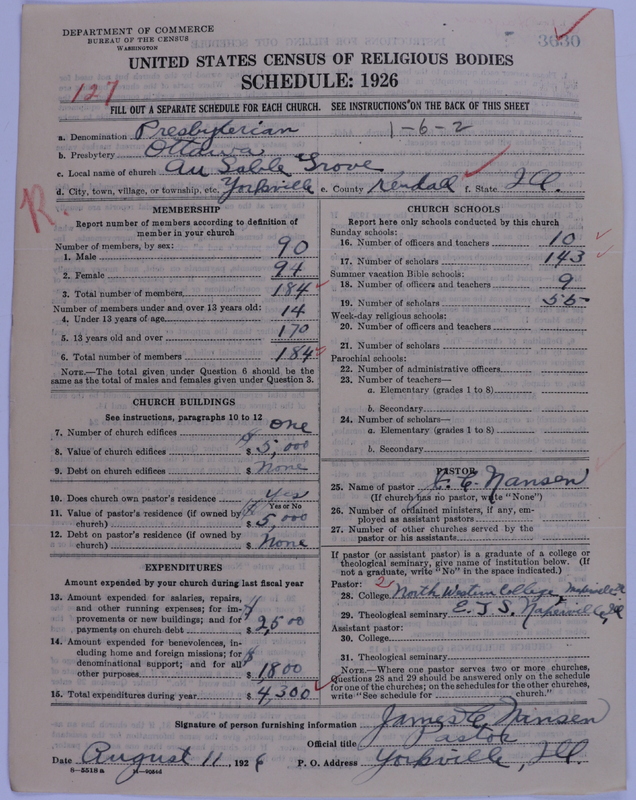 DEPARTMENT OF COMMERCE
BUREAU OF THE CENSUS
WASHINGTON
3630
UNITED STATES CENSUS OF RELIGIOUS BODIES
SCHEDULE: 1926
127
FILL OUT A SEPARATE SCHEDULE FOR EACH CHURCH. SEE INSTRUCTIONS ON THE BACK OF THIS SHEET
a. Denomination Presbyterian 1-6-2
b. Presbytery Ottawa
c. Local name of church Au Sable Grove
d. City, town, village, or township, etc. Yorkville e. County Kendall f. State Ill.
R.
MEMBERSHIP
Report number of members according to definition of
member in your church
Number of members, by sex:
1. Male 90
2. Female 94
3. Total number of members 184
Number of members under and over 13 years old:
4. Under 13 years of age 14
5. 13 years old and over 170
6. Total number of members 184
NOTE.—The total given under Question 6 should be
same as the total of males and females given under Question 3.
CHURCH BUILDINGS
See instructions, paragraphs 10 to 12
7. Number of church edifices one
8. Value of church edifices $ 5,000
9. Debt on church edifices $ None
10. Does church own pastor's residence Yes
Yes or No
11. Value of pastor's residence (if owned by
church) $ 5,000
12. Debt on pastor's residence (if owned by
church) $ None
EXPENDITURES
Amount expended by your church during last fiscal year
13. Amount expended for salaries, repairs,
and other running expenses; for im-
provements or new buildings; and for
payments on church debt $ 2500
14. Amount expended for benevolences, in-
cluding home and foreign missions; for
denominational support; and for all
other purposes $ 1800
15. Total expenditures during year $ 4,300
CHURCH SCHOOLS
Report here only schools conducted by this church
Sunday schools:
16. Number of officers and teachers 10
17. Number of scholars 143
Summer vacation Bible schools:
18. Number of officers and teachers 9
19. Number of scholars 55
Week-day religious schools:
20. Number of officers and teachers
21. Number of scholars
Parochial schools:
22. Number of administrative officers
23. Number of teachers—
a. Elementary (grades 1 to 8)
b. Secondary
24. Number of scholars—
a. Elementary (grades 1 to 8)
b. Secondary
PASTOR
25. Name of pastor J. C. Nansen
(If church has no pastor, write "None")
26. Number of ordained ministers, if any, em-
ployed as assistant pastors
27. Number of other churches served by the
pastor or his assistants
If pastor (or assistant pastor) is a graduate of a college or
theological seminary, give name of institution below. (If
not a graduate, write "No" in the space indicated.)
Pastor: 2
28. College North Western College, Naperville Ill
29. Theological seminary E. T. S. Naperville, Ill
Assistant pastor:
30. College
31. Theological seminary
NOTE.—Where one pastor serves two or more churches,
Questions 28 and 29 should be answered only on the schedule
for one of the churches; on the schedules for the other churches,
write "See schedule for church."
Signature of person furnishing information James C. Nansen
Official title Pastor
Date August 11, 1926 P. O. Address Yorkville, Ill.
8—5518a